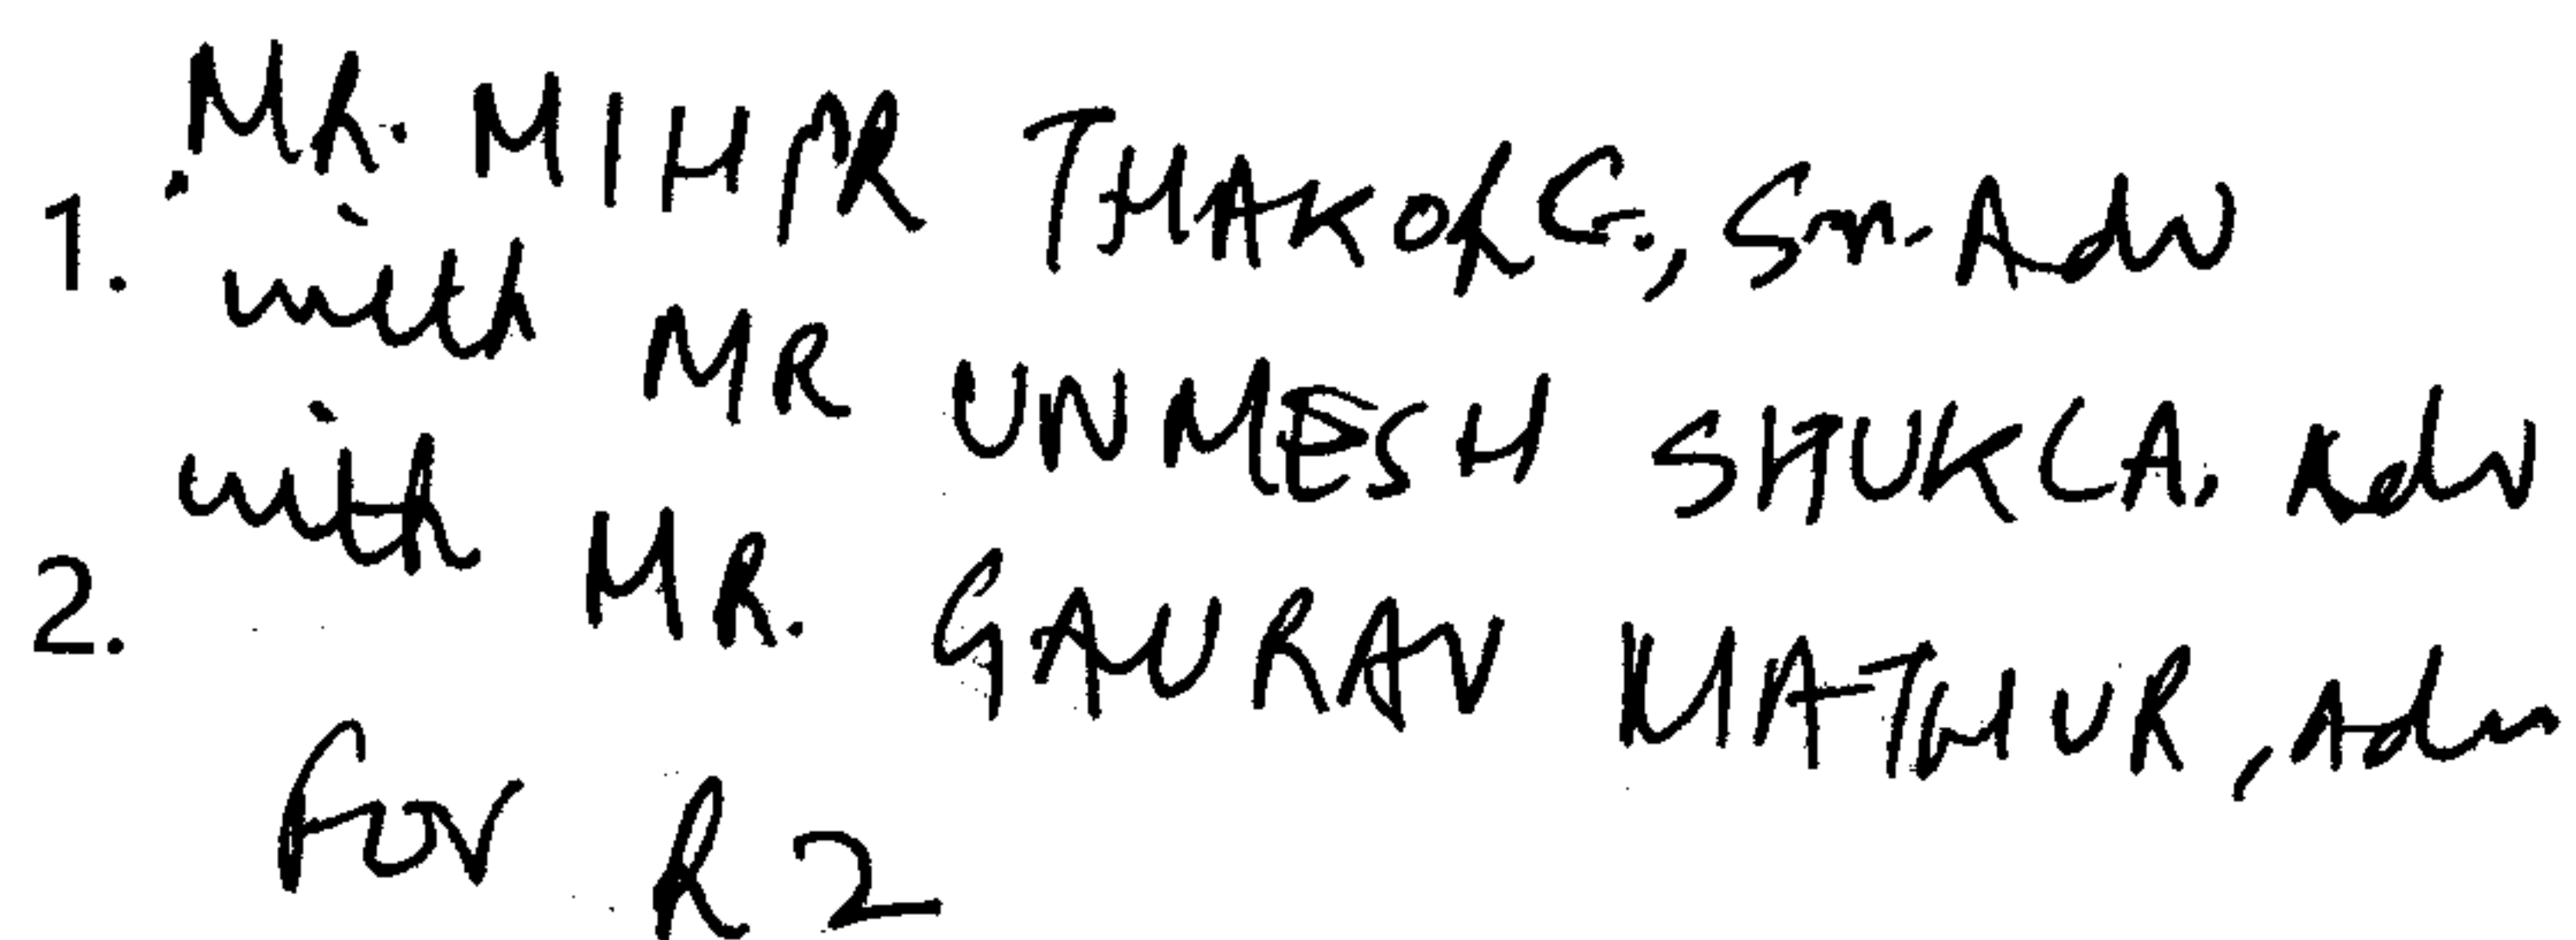 MR. MIHIR THAKORE, Sr. Adv
1. with MR UNMESH SHUKLA, Adv
with MR. GAURAV MATHUR, Adv
2.
For R2